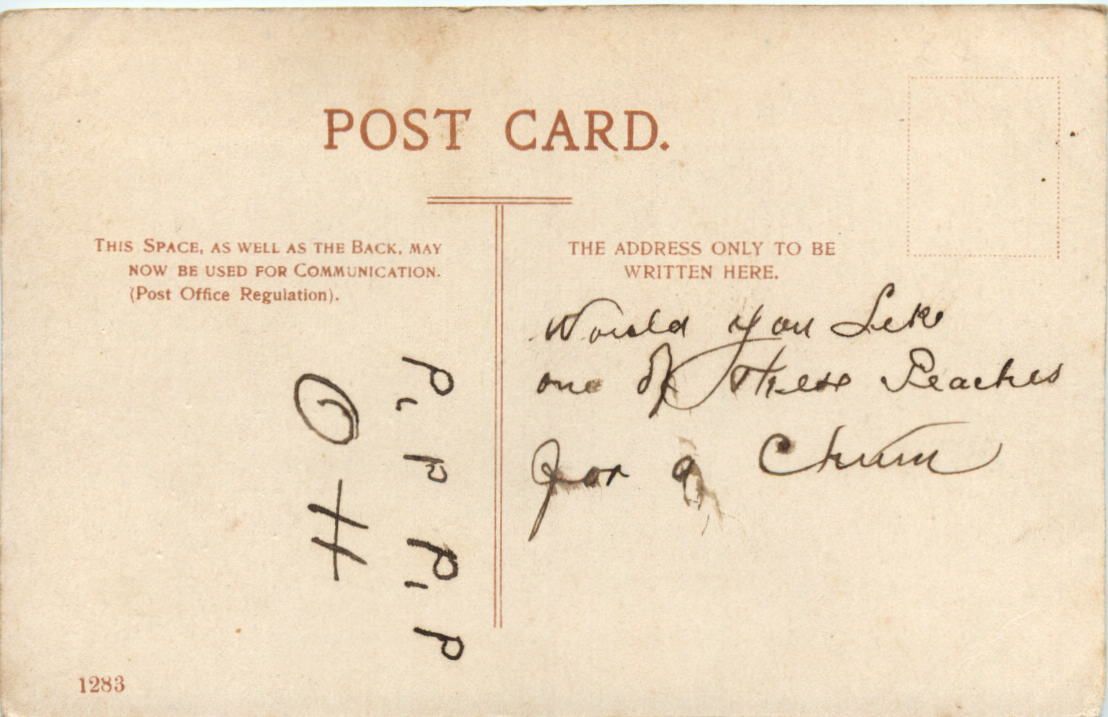 POST CARD.
THIS SPACE, AS WELL AS THE BACK, MAY
NOW BE USED FOR COMMUNICATION.
(Post Office Regulation).
THE ADDRESS ONLY TO BE
WRITTEN HERE.
Would you Like
one of these Peaches
for a Chum
P. P P. P
O H
1283